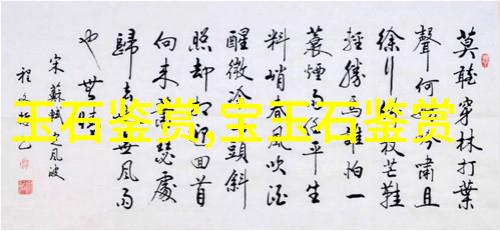 玉石鉴赏,宝玉石鉴赏
莫聽穿林打葉
聲何妨吟嘯且
徐行竹杖芒鞋
輕勝馬誰怕一
蓑煙雨任平生
料峭春風吹酒
醒微冷山頭斜
照却相迎回首
向来蕭瑟處
歸去也無風雨
也無晴
宋蘇軾定風波